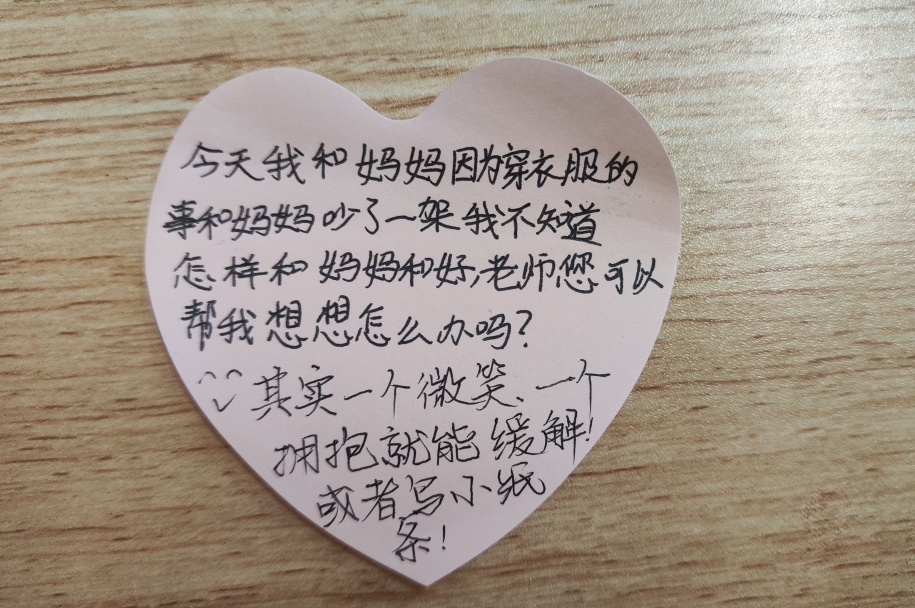 今天我和妈妈因为穿衣服的
事和妈妈吵了一架我不知道
怎样和妈妈和好,老师您可以
帮我想想怎么办吗?
其实一个微笑、一个
拥抱就能缓解!
或者写小纸
条!